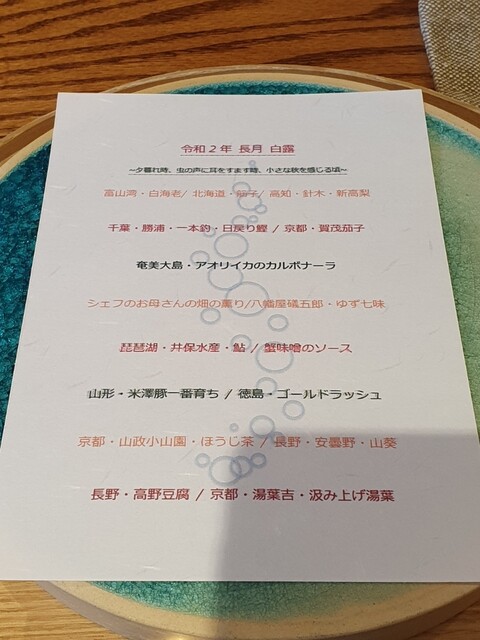 令和2年 長月 白露
~夕暮れ時、虫の声に耳をすます時、小さな秋を感じる頃~
富山湾・白海老/ 北海道・帆子/ 高知・針木・新高梨
千葉・勝浦・一本釣・日戻り鰹 / 京都・賀茂茄子
奄美大島・アオリイカのカルボナーラ
シェフのお母さんの畑の薫り/八幡屋礒五郎・ゆず七味
琵琶湖・井保水産・鮎 / 蟹味噌のソース
山形・米澤豚一番育ち / 徳島・ゴールドラッシュ
京都・山政小山園・ほうじ茶 / 長野・安曇野・山葵
長野・高野豆腐 / 京都・湯葉吉・汲み上げ湯葉